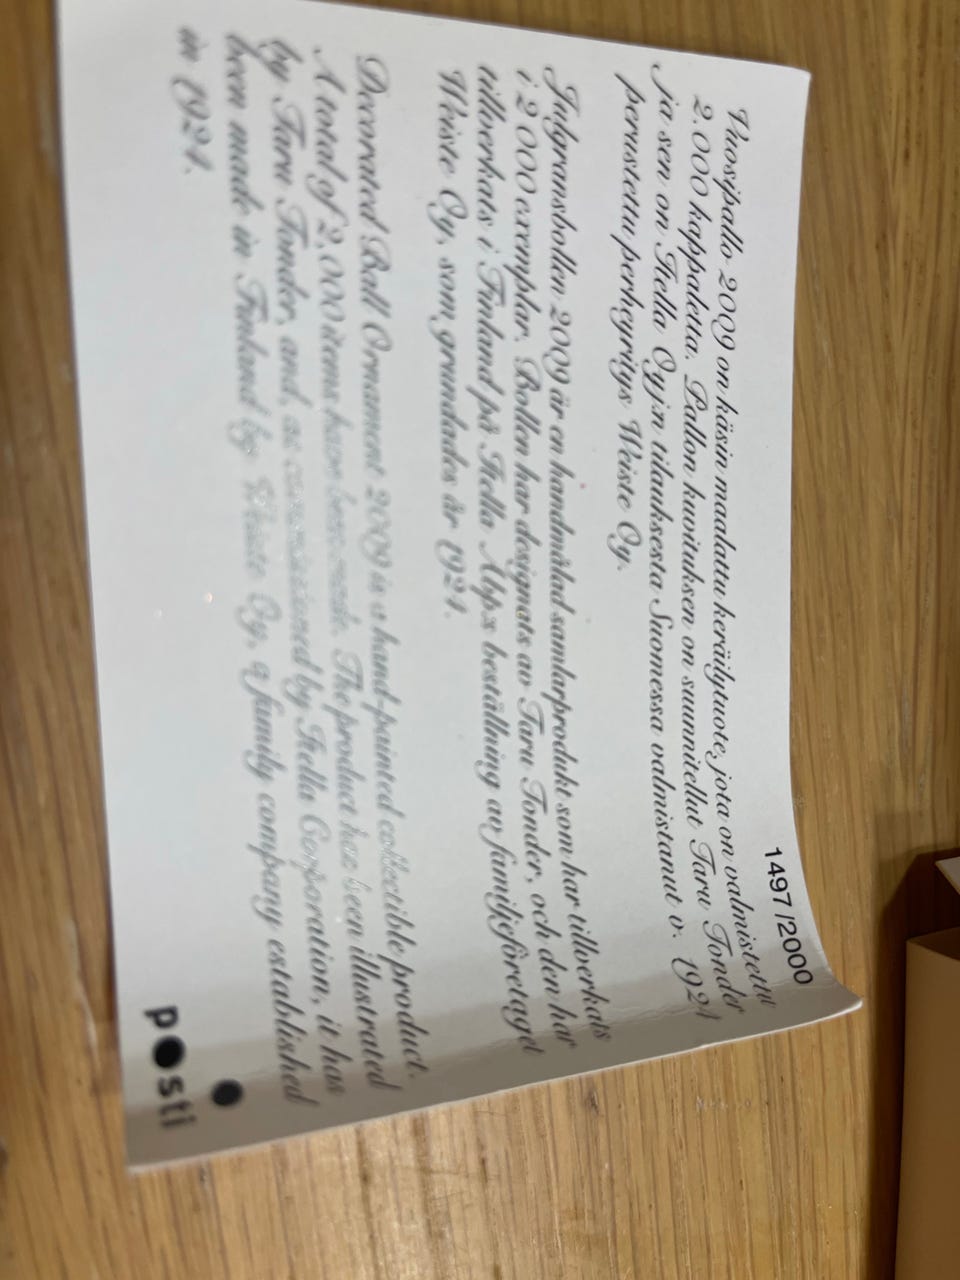 1497/2000
Vuosipallo 2009 on käsin maadattu keräilytuote, jota on valmistettu
2.000 kappaletta. Pallon kuvituksen on suunnitellut Taru Tonder
ja sen on Itella Oyj:n tilauksesta Suomessa valmistanut v. 1924
perustettu perheyritys Weiste Oy.
Julgransbollen 2009 är en handmålad samlarprodukt som har tillverkats
i 2 000 exemplar. Bollen har designats av Taru Tonder, och den har
tillverkats i Finland på Itella Abp:s beställning av familjeföretaget
Weiste Oy, som grundades år 1924.
Decorated Ball Ornament 2009 is a hand-painted collectible product.
A total of 2,000 items have been made. The product has been illustrated
by Taru Tonder, and, as commissioned by Itella Corporation, it has
been made in Finland by Weiste Oy, a family company established
in 1924.
posti